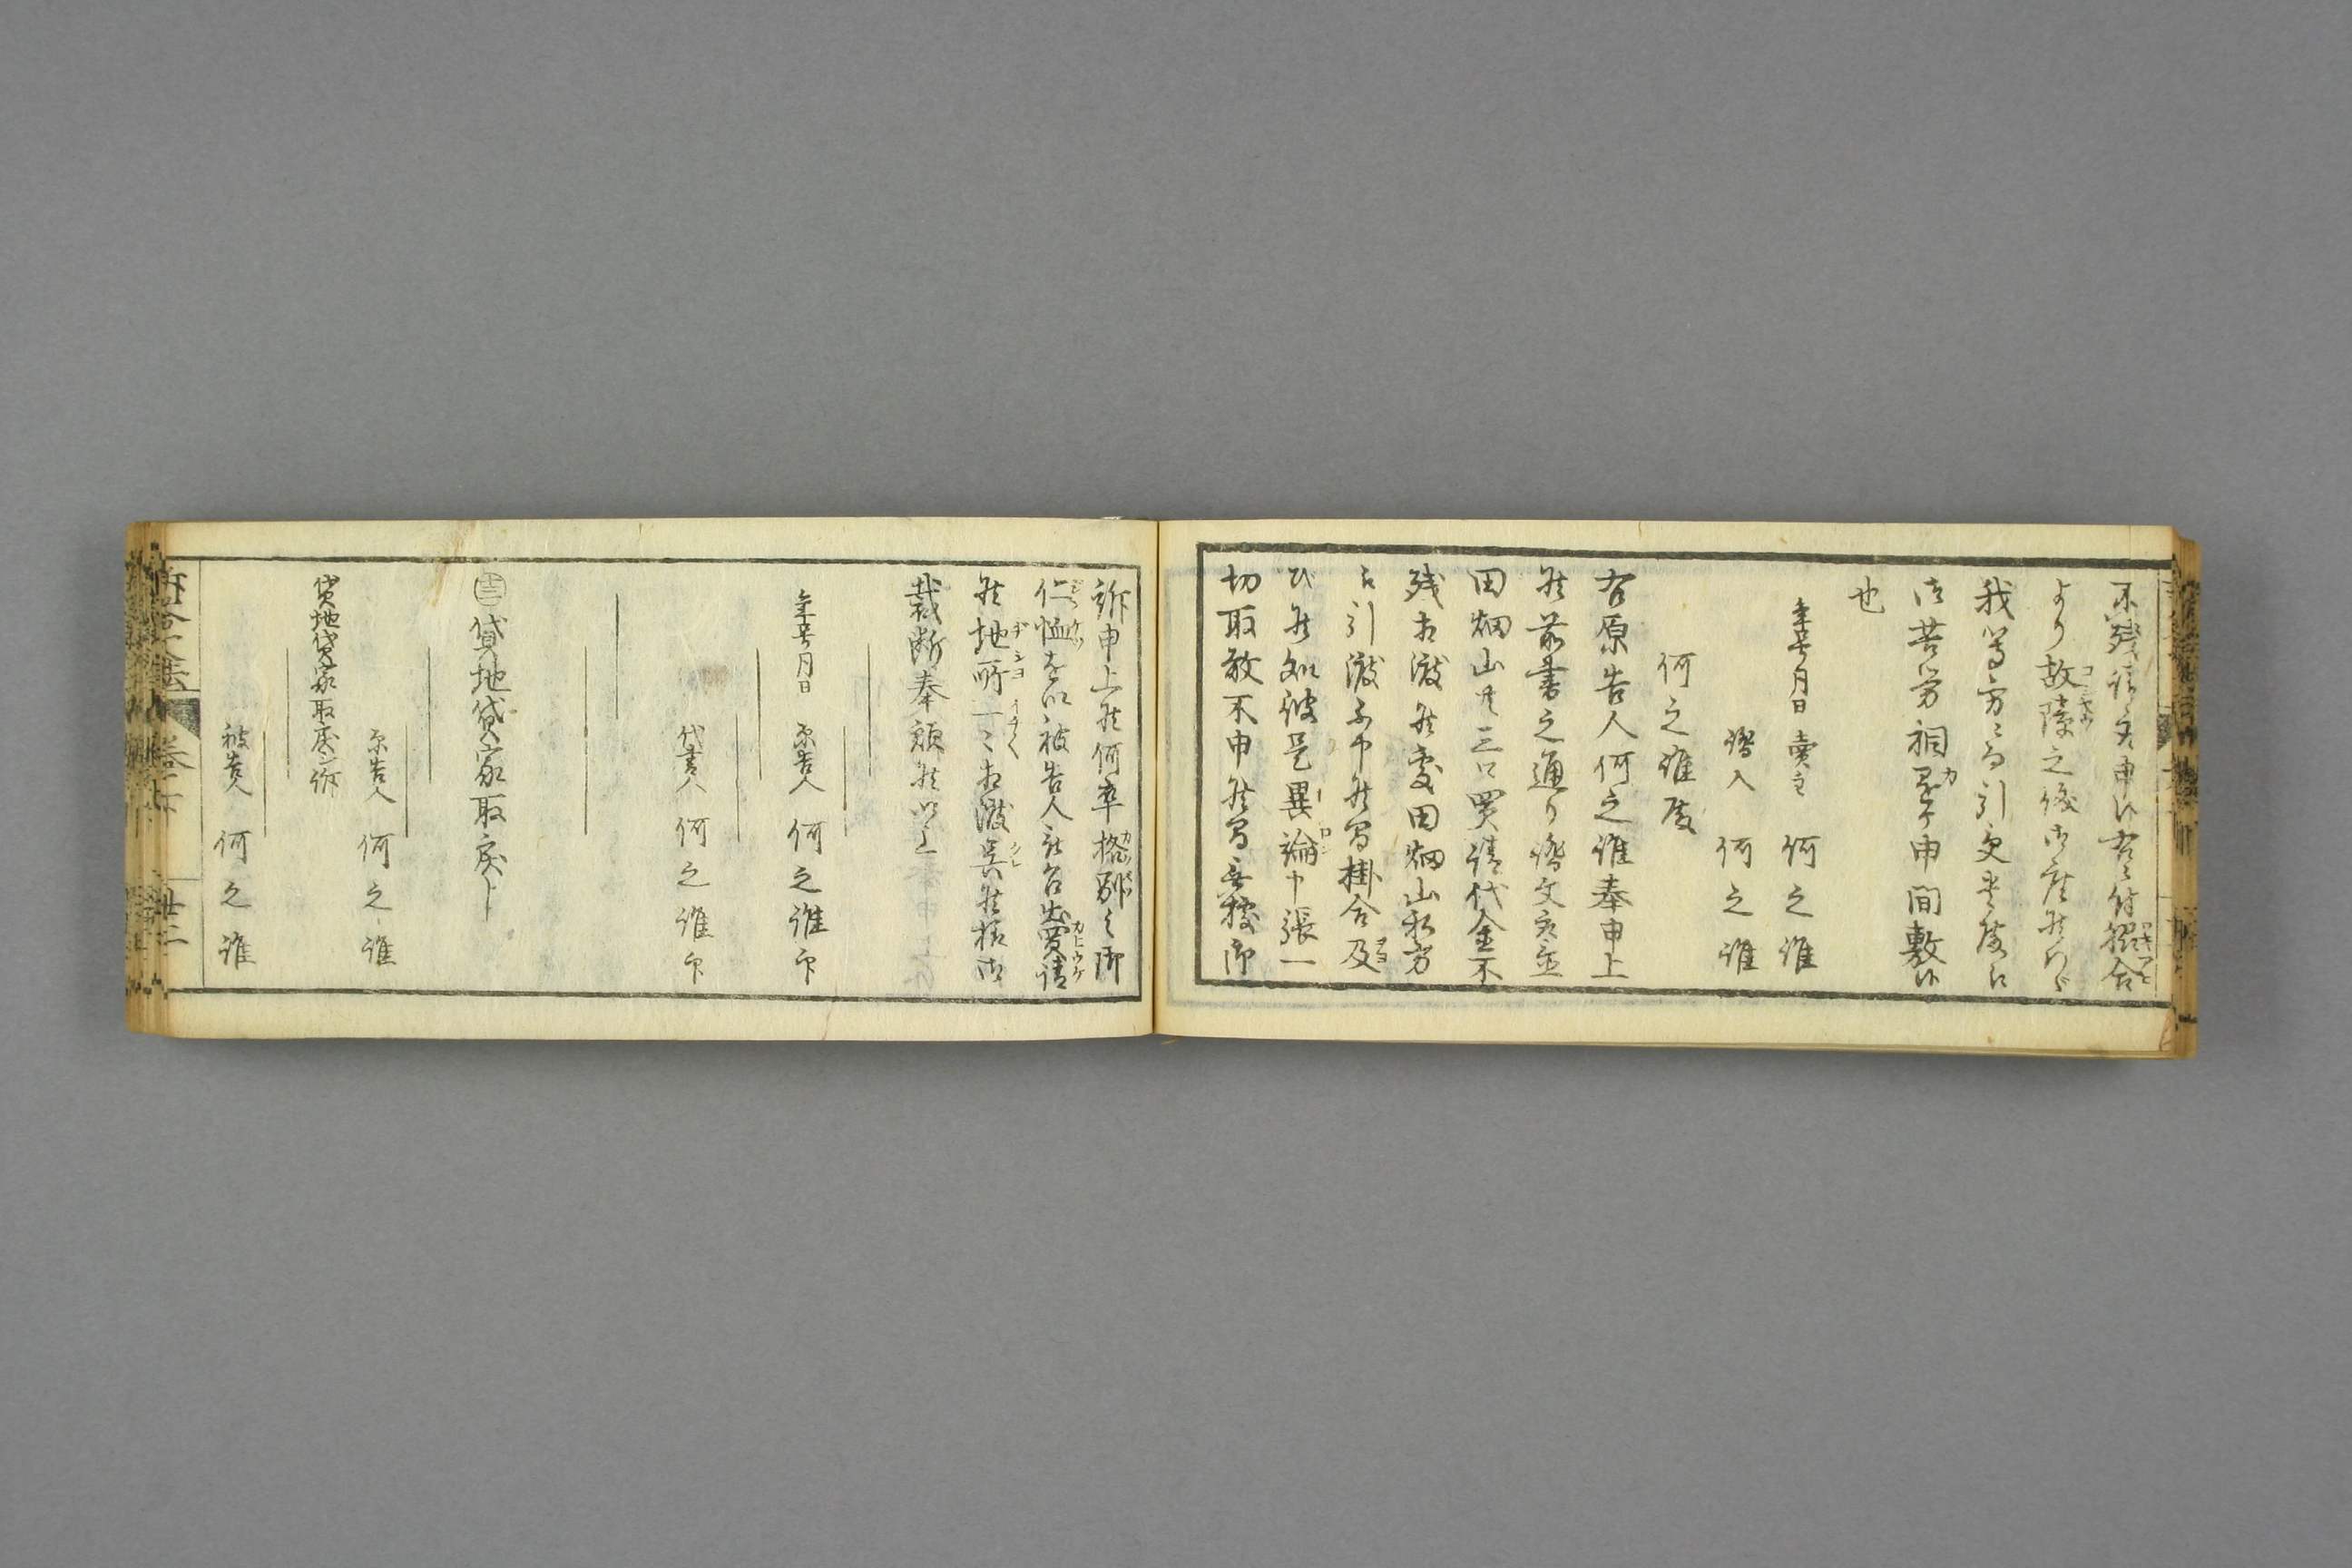 不残請取申候右ニ付
より故障之儀御座候ハヾ
我等方ニ而引受貴殿江
御苦労相懸ケ申間敷候
也
年号月日 売主 何之誰
證人 何之誰
何之誰殿
右原告人何之誰奉申上
候前書之通り證文
田畑山共三口買請代金不
残相渡候処田畑山私方
江引渡不申候間掛合及
ひ候処彼是異論申張一
切取敢不申候間無拠御
訴申上候何卒格別之御
仁恤を以被告人被召出買請
候地所一々相渡呉候様御
裁断奉願候以上
年号月日 原告人 何之誰印
代書人 何之誰印
貸地貸家取戻シ
貸地貸家取戻シ之訴
原告人 何之誰
被告人 何之誰